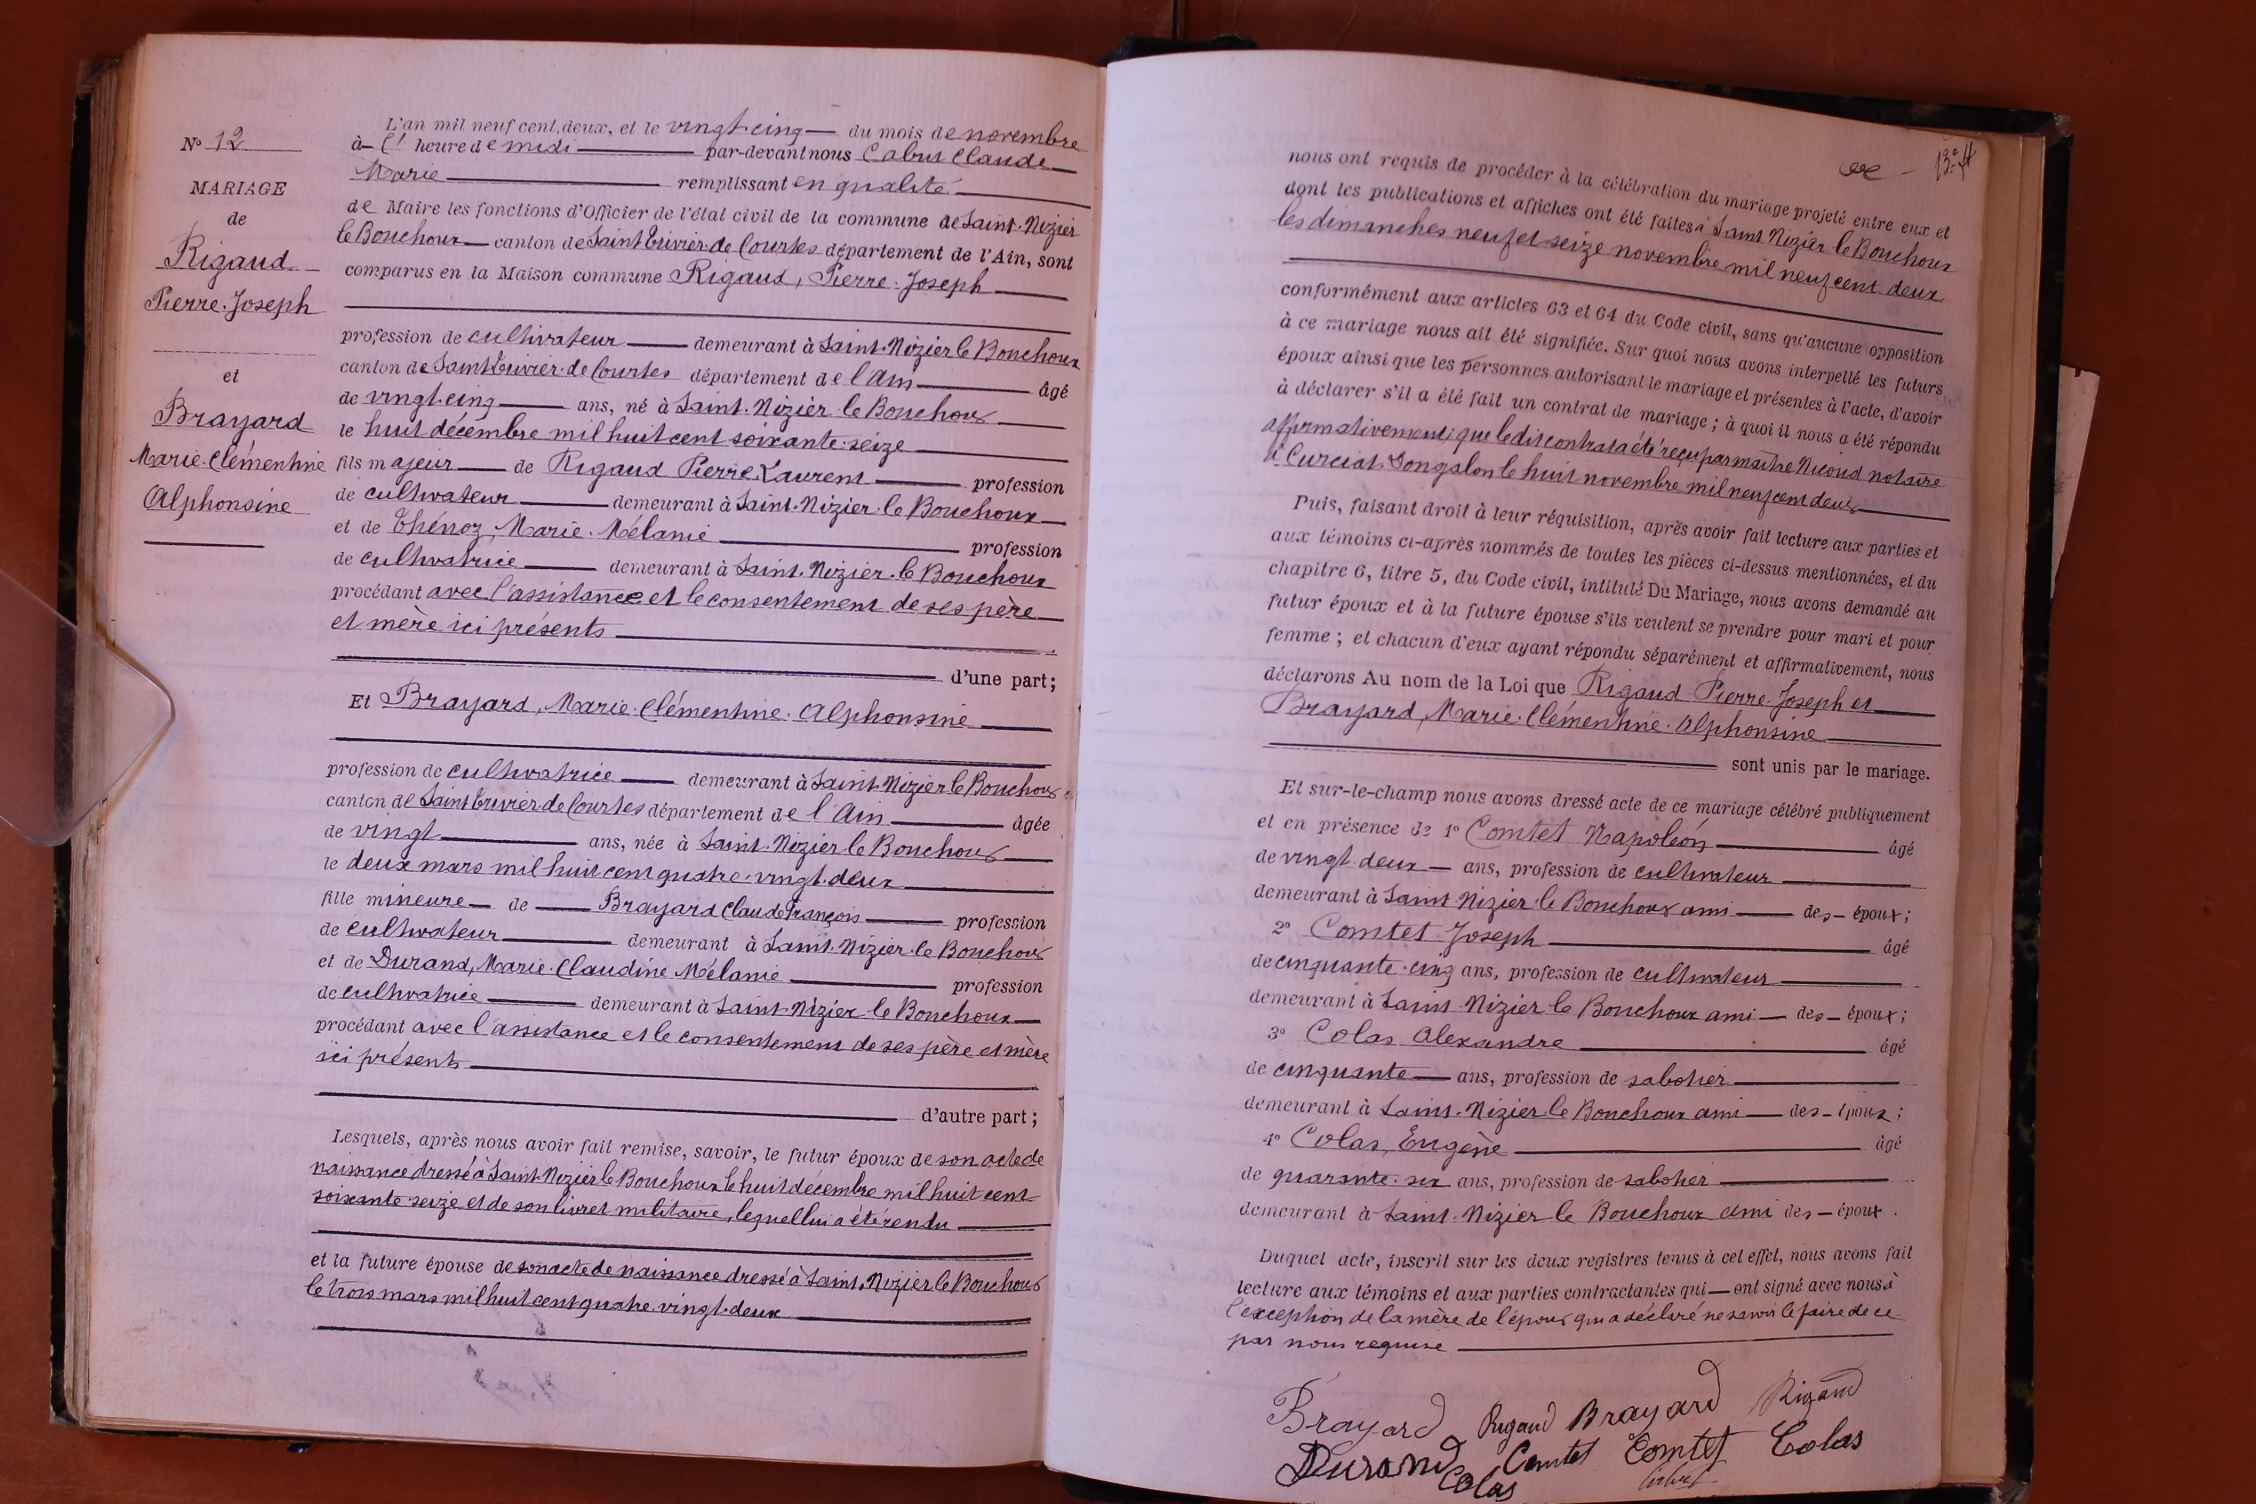 N° 12
MARIAGE
de
Rigaud
Pierre-Joseph
et
Brayard
Marie-Clémentine
Alphonsine
L'an mil neuf cent deux, et le vingt-cinq du mois de novembre
à l' heure de midi par-devant nous Cabut Claude
Marie remplissant en qualité
de Maire les fonctions d'Officier de l'état civil de la commune de Saint-Nizier
le Bouchoux canton de Saint Trivier-de Courtes département de l'Ain, sont
comparus en la Maison commune Rigaud, Pierre-Joseph
profession de cultivateur demeurant à Saint-Nizier le Bouchoux
canton de Saint Trivier-de Courtes département de l'Ain âgé
de vingt-cinq ans, né à Saint-Nizier-le Bouchoux
le huit décembre mil huit cent soixante-seize
fils majeur de Rigaud Pierre Laurent profession
de cultivateur demeurant à Saint-Nizier-le Bouchoux
et de Thénoz, Marie-Mélanie profession
de cultivatrice demeurant à Saint-Nizier-le Bouchoux
procédant avec l'assistance et le consentement de ses père
et mère ici présents
d'une part;
Et Brayard, Marie-Clémentine-Alphonsine
profession de cultivatrice demeurant à Saint-Nizier le Bouchoux
canton de Saint Trivier de Courtes département de l'Ain âgée
de vingt ans, née à Saint-Nizier le Bouchoux
le deux mars mil huit cent quatre-vingt-deux
fille mineure de Brayard Claude François profession
de cultivateur demeurant à Saint-Nizier-le Bouchoux
et de Durand, Marie-Claudine Mélanie profession
de cultivatrice demeurant à Saint-Nizier-le Bouchoux
procédant avec l'assistance et le consentement de ses père et mère
ici présents
d'autre part;
Lesquels, après nous avoir fait remise, savoir, le futur époux de son acte de
naissance dressé à Saint-Nizier le Bouchoux le huit décembre mil huit cent
soixante-seize et de son livret militaire, lequel lui a été rendu
et la future épouse de son acte de naissance dressé à Saint-Nizier le Bouchoux
le trois mars mil huit cent quatre-vingt-deux
nous ont requis de procéder à la célébration du mariage projeté entre eux et
dont les publications et affiches ont été faites à Saint Nizier le Bouchoux
les dimanches neuf et seize novembre mil neuf cent deux
conformément aux articles 63 et 64 du Code civil, sans qu'aucune opposition
à ce mariage nous ait été signifiée. Sur quoi nous avons interpellé les futurs
époux ainsi que les personnes autorisant le mariage et présentes à l'acte, d'avoir
à déclarer s'il a été fait un contrat de mariage; à quoi il nous a été répondu
affirmativement; que ledit contrat a été reçu par maître Nicoud notaire
à Curciat-Dongalon le huit novembre mil neuf cent deux
Puis, faisant droit à leur réquisition, après avoir fait lecture aux parties et
aux témoins ci-après nommés de toutes les pièces ci-dessus mentionnées, et du
chapitre 6, titre 5, du Code civil, intitulé Du Mariage, nous avons demandé au
futur époux et à la future épouse s'ils veulent se prendre pour mari et pour
femme; et chacun d'eux ayant répondu séparément et affirmativement, nous
déclarons Au nom de la Loi que Rigaud Pierre-Joseph et
Brayard, Marie-Clémentine-Alphonsine
sont unis par le mariage.
Et sur-le-champ nous avons dressé acte de ce mariage célébré publiquement
et en présence de 1° Comtet Napoléon âgé
de vingt deux ans, profession de cultivateur
demeurant à Saint Nizier-le Bouchoux ami des époux;
2° Comtet Joseph âgé
de cinquante-cinq ans, profession de cultivateur
demeurant à Saint-Nizier le Bouchoux ami des époux;
3° Colas Alexandre âgé
de cinquante ans, profession de sabotier
demeurant à Saint-Nizier le Bouchoux ami des époux;
4° Colas, Eugène âgé
de quarante-six ans, profession de sabotier
demeurant à Saint-Nizier le Bouchoux ami des époux.
Duquel acte, inscrit sur les deux registres tenus à cet effet, nous avons fait
lecture aux témoins et aux parties contractantes qui ont signé avec nous à
l'exception de la mère de l'époux qui a déclaré ne savoir le faire de ce
par nous requise
Brayard Rigaud Brayard Rigaud
Durand Comtet Comtet Colas
Colas Cabut